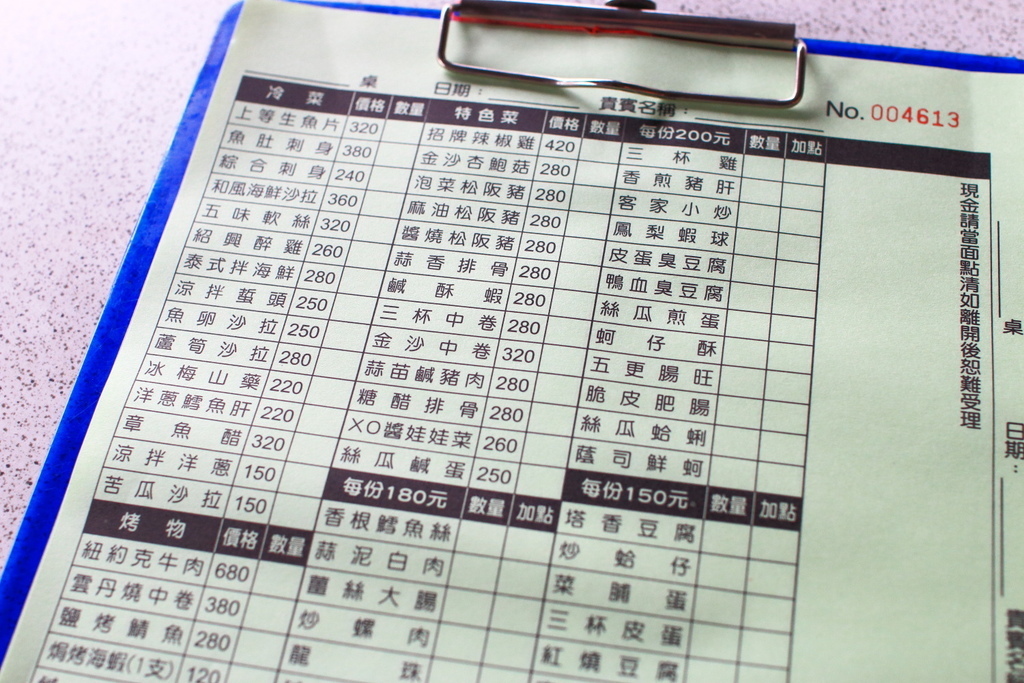 桌 日期： 貴賓名稱： No. 004613
冷菜 價格 數量
上等生魚片 320
魚肚刺身 380
綜合刺身 240
和風海鮮沙拉 360
五味軟絲 320
紹興醉雞 260
泰式拌海鮮 280
涼拌蜇頭 250
魚卵沙拉 250
蘆筍沙拉 280
冰梅山藥 220
洋蔥鱈魚肝 220
章魚醋 320
涼拌洋蔥 150
苦瓜沙拉 150
烤物 價格 數量
紐約克牛肉 680
雲丹燒中卷 380
鹽烤鯖魚 280
焗烤海蝦(1支) 120
特色菜 價格 數量
招牌辣椒雞 420
金沙杏鮑菇 280
泡菜松阪豬 280
麻油松阪豬 280
醬燒松阪豬 280
蒜香排骨 280
鹹酥蝦 280
三杯中卷 280
金沙中卷 320
蒜苗鹹豬肉 280
糖醋排骨 280
XO醬娃娃菜 260
絲瓜鹹蛋 250
每份180元 數量 加點
香根鱈魚絲
蒜泥白肉
薑絲大腸
炒螺肉
龍珠
每份200元 數量 加點
三杯雞
香煎豬肝
客家小炒
鳳梨蝦球
皮蛋臭豆腐
鴨血臭豆腐
絲瓜煎蛋
蚵仔酥
五更腸旺
脆皮肥腸
絲瓜蛤蜊
蔭司鮮蚵
每份150元 數量 加點
塔香豆腐
炒蛤仔
菜脯蛋
三杯皮蛋
紅燒豆腐
現金請當面點清如離開後恕難受理
桌
日期：
貴賓名